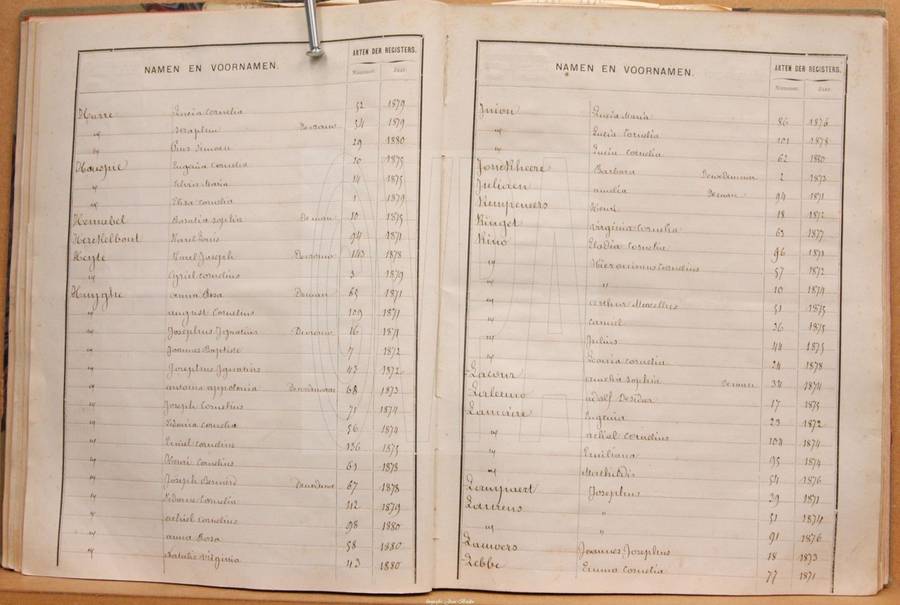 NAMEN EN VOORNAMEN. AKTEN DER REGISTERS.
Nummer. Jaar.
Lucia Cornelia 52 1879
" Seraphin 54 1879
" Pius 29 1880
Eugenia Cornelia 10 1875
" Silvia Maria 14 1875
" Elisa Cornelia 1 1879
Hennebel Rosalia Sophia Deman 10 1875
Herckelbout Karel Louis 94 1871
Heyte Karel Joseph 143 1878
" Cyriel Cornelius 3 1879
Huyghe Anna Rosa Deman 65 1871
" August Cornelius 109 1871
" Josephus Ignatius 16 1871
" Joannes Baptiste 7 1872
" Josephus Ignatius 43 1872
" Appolonia 68 1873
" Joseph Cornelius 71 1874
" Sidonia Cornelia 56 1874
" Emiel Cornelius 136 1875
" Henri Cornelius 61 1878
" Joseph Bernard 67 1878
" Cornelia 112 1879
" Achiel Cornelius 98 1880
" Anna Rosa 58 1880
" Natalie Virginia 43 1880
NAMEN EN VOORNAMEN. AKTEN DER REGISTERS.
Nummer. Jaar.
Maria 86 1876
" Lucia Cornelia 101 1878
" Lucia Cornelia 62 1880
Jonckheere Barbara 2 1873
Juliaen Amelia Deman 94 1871
Kempeneers Henri 18 1872
Kinget Virginia Cornelia 63 1877
Kino Eladia Cornelia 96 1871
" Hieronimus Cornelius 57 1872
" " 10 1874
" Arthur Marcellus 51 1875
" Camiel 36 1875
" Julius 44 1875
" Leonia Cornelia 24 1878
Lacour Amelia Sophia Deman 34 1874
Adolf Desider 17 1875
Lamière Eugenia 23 1872
" Achiel Cornelius 104 1874
" Emiliana 95 1874
" Mathildis 54 1876
Josephus 29 1871
Laurens " 51 1874
" " 91 1876
Lauwers Joannes Josephus 18 1873
Lebbe Emma Cornelia 77 1871